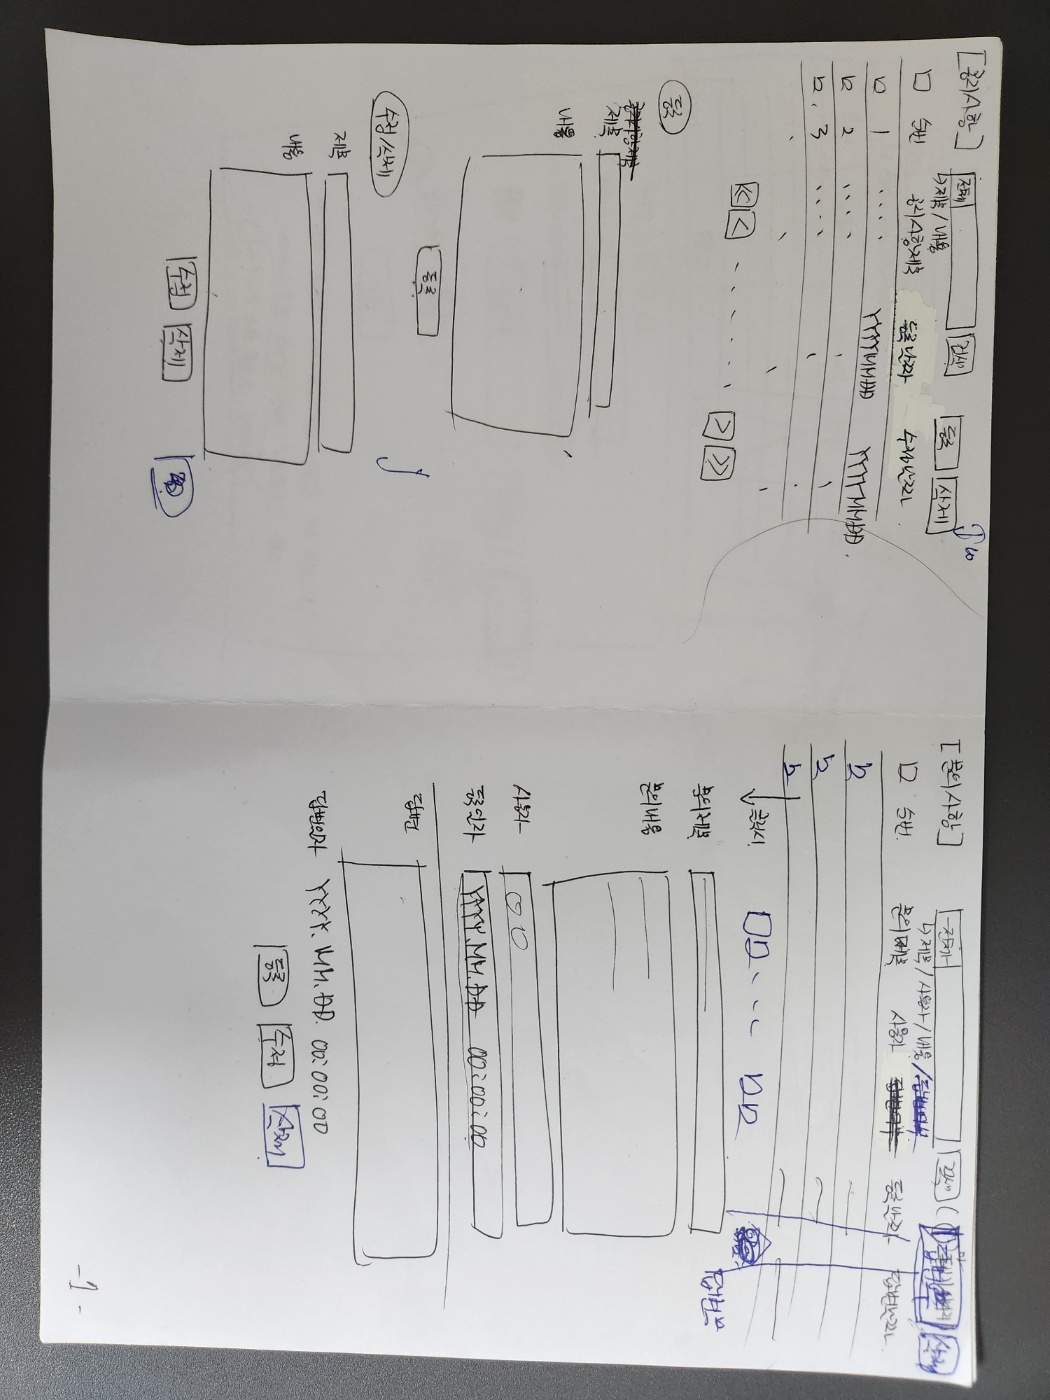 [공지사항] 전체 검색 등록 삭제 10
↳ 제목 / 내용
순번 공지사항제목 등록날짜 수정날짜
1 . . . . YYYYMMDD YYYYMMDD
2 . . . .
3 . . . .
<< < . . . . . . . > >>
등록
제목
내용
등록
수정/삭제
제목
내용
수정 삭제
[문의사항] 전체 검색 삭제
↳ 제목 / 사용자 / 내용 / 답변여부
순번 문의제목 사용자 답변여부 등록날짜 답변날짜
클릭시
답변여부
문의제목
문의내용
사용자 ○○
등록일자 YYYY.MM.DD 00:00:00
답변
답변일자 YYYY.MM.DD. 00:00:00
등록 수정 삭제
-1-